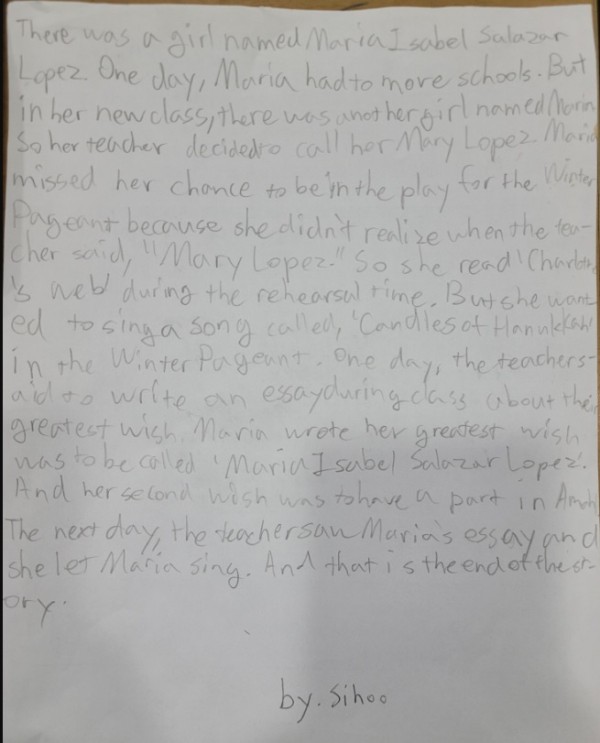 There was a girl named Maria Isabel Salazar
Lopez. One day, Maria had to move schools. But
in her new class, there was another girl named
So her teacher decided to call her Mary Lopez. Maria
missed her chance to be in the play for the Winter
Pageant because she didn't realize when the tea-
cher said, "Mary Lopez." So she read 'Charlotte
's web' during the rehearsal time. But she want
ed to sing a song called, 'Candles of Hanukkah'
in the Winter Pageant. One day, the teacher s-
aid to write an essay during class about their
greatest wish. Maria wrote her greatest wish
was to be called 'Maria Isabel Salazar Lopez'.
And her second wish was to have a part in
The next day, the teacher saw Maria's essay and
she let Maria sing. And that is the end of the st-
ory.
by. Sihoo